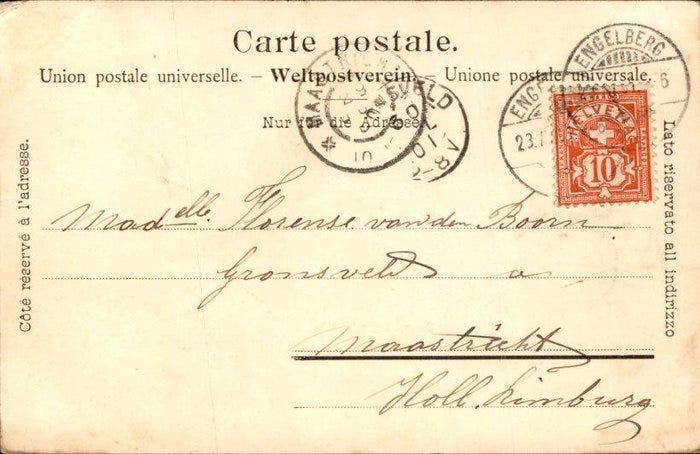 Carte postale.
Union postale universelle. – Weltpostverein. – Unione postale universale.
Nur für die Adresse.
ENGELBERG
ENGELBERG
23.
6
HELVETIA
10
MAASTRICHT
GRONSVELD
Côté réservé à l'adresse.
Lato riservato all indirizzo
Madelle. Florense van den Boorn
Gronsveld a
Maastricht
Holl. Limburg